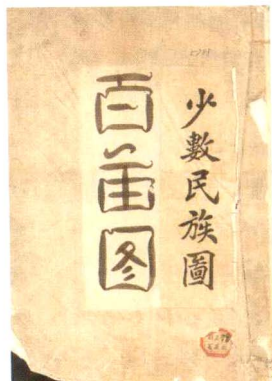 少數民族圖
百苗图